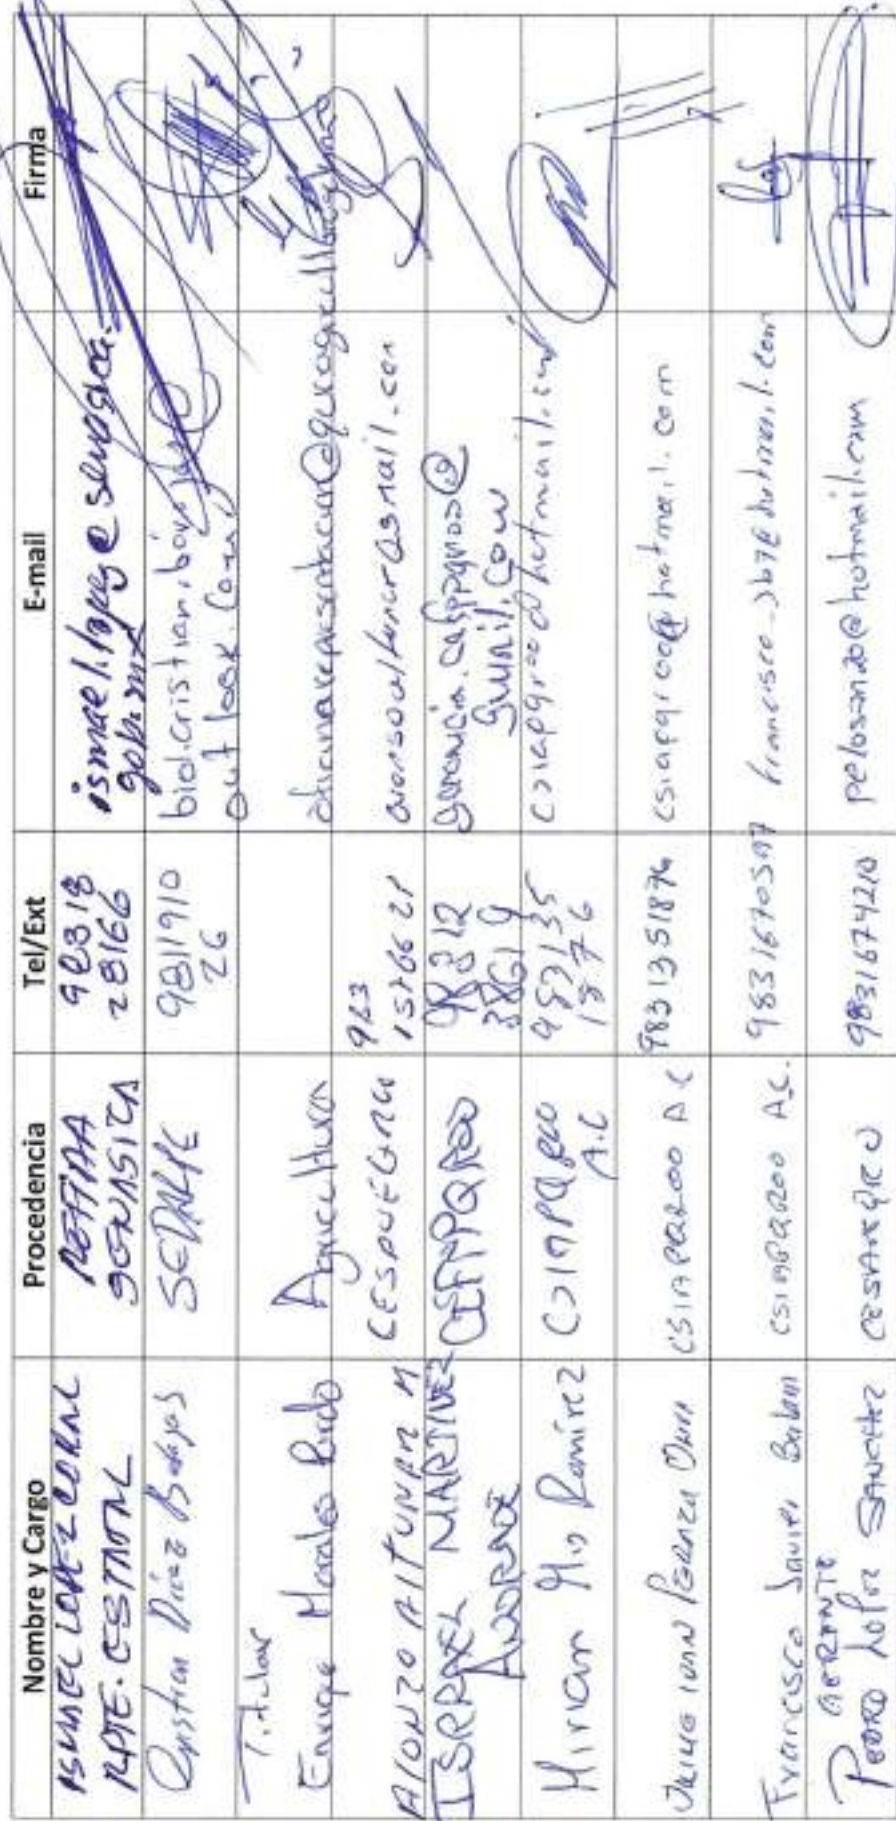 Nombre y Cargo Procedencia Tel/Ext E-mail Firma
ISMAEL LOPEZ CORAL
RPTE. ESTATAL
SENASICA
98318
28166
ismael.lopez@senasica.
gob.mx
Cristian Diaz
SEDARPE
9811910
26
biol.cristian.
outlook.com
Titular
Enrique Morales Pardo
Agricultura
ALONZO AITUNAR M
CESPVEGROO
983
1576621
ISRRAEL MARTINEZ
ANDRADE
CEFPPQROO
98312
38619
gerencia.cefppqroo@
gmail.com
Miriam Mis Ramírez
CSIAPQROO
A.C
983135
1876
csiapqroo@hotmail.com
CSIAPQROO A C
9831351876
csiapqroo@hotmail.com
Francisco Javier Balam
CSIAPQROO A.C.
9831670517
francisco_jb7@hotmail.com
GERENTE
PEDRO LOPEZ SANCHEZ
CESAVEQROO
9831674210
pelosan20@hotmail.com